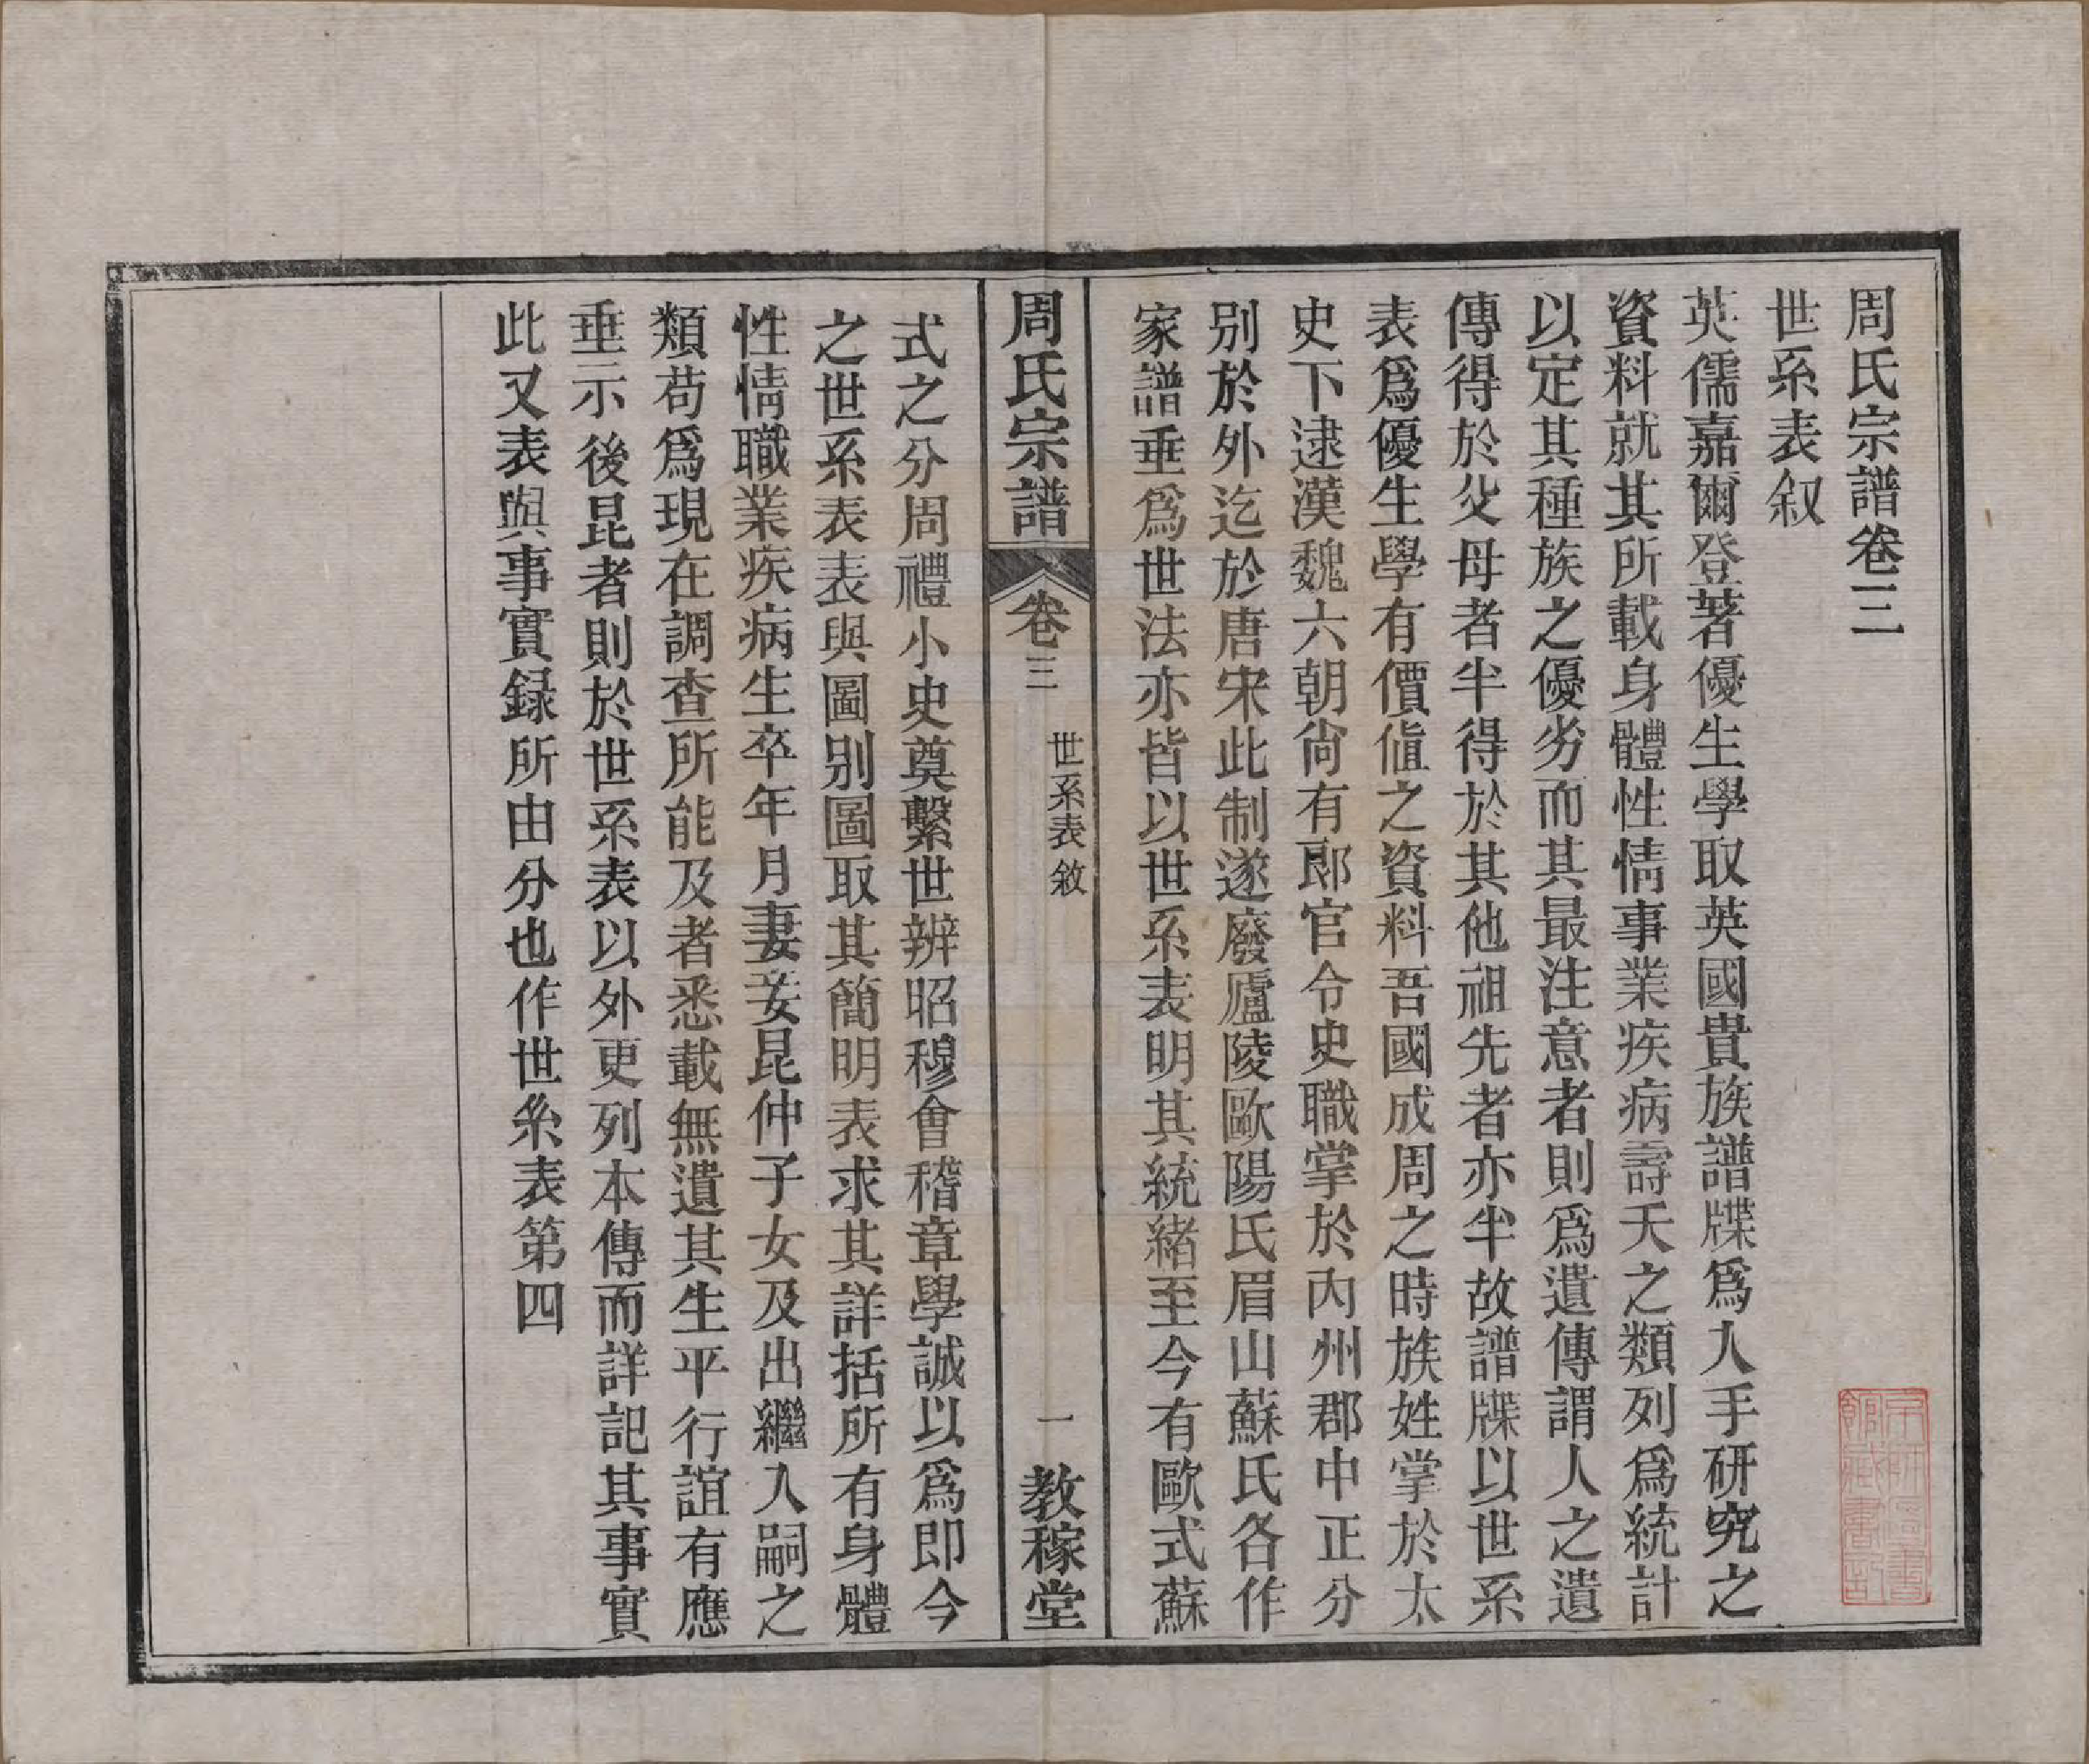 周氏宗譜卷三
世系表叙
英儒嘉爾登著優生學取英國貴族譜牒爲人手研究之
資料就其所載身體性情事業疾病壽夭之類列爲統計
以定其種族之優劣而其最注意者則爲遺傳謂人之遺
傳得於父母者半得於其他祖先者亦半故譜牒以世系
表爲優生學有價値之資料吾國成周之時族姓掌於太
史下逮漢魏六朝尙有郎官令史職掌於內州郡中正分
別於外迄於唐宋此制遂廢廬陵歐陽氏眉山蘇氏各作
家譜垂爲世法亦皆以世系表明其統緒至今有歐式蘇
周氏宗譜
卷三
世系表敘
一
教稼堂
式之分周禮小史奠繫世辨昭穆會稽章學誠以爲即今
之世系表表與圖別圖取其簡明表求其詳括所有身體
性情職業疾病生卒年月妻妾昆仲子女及出繼入嗣之
類苟爲現在調查所能及者悉載無遺其生平行誼有應
垂示後昆者則於世系表以外更列本傳而詳記其事實
此又表與事實録所由分也作世系表第四